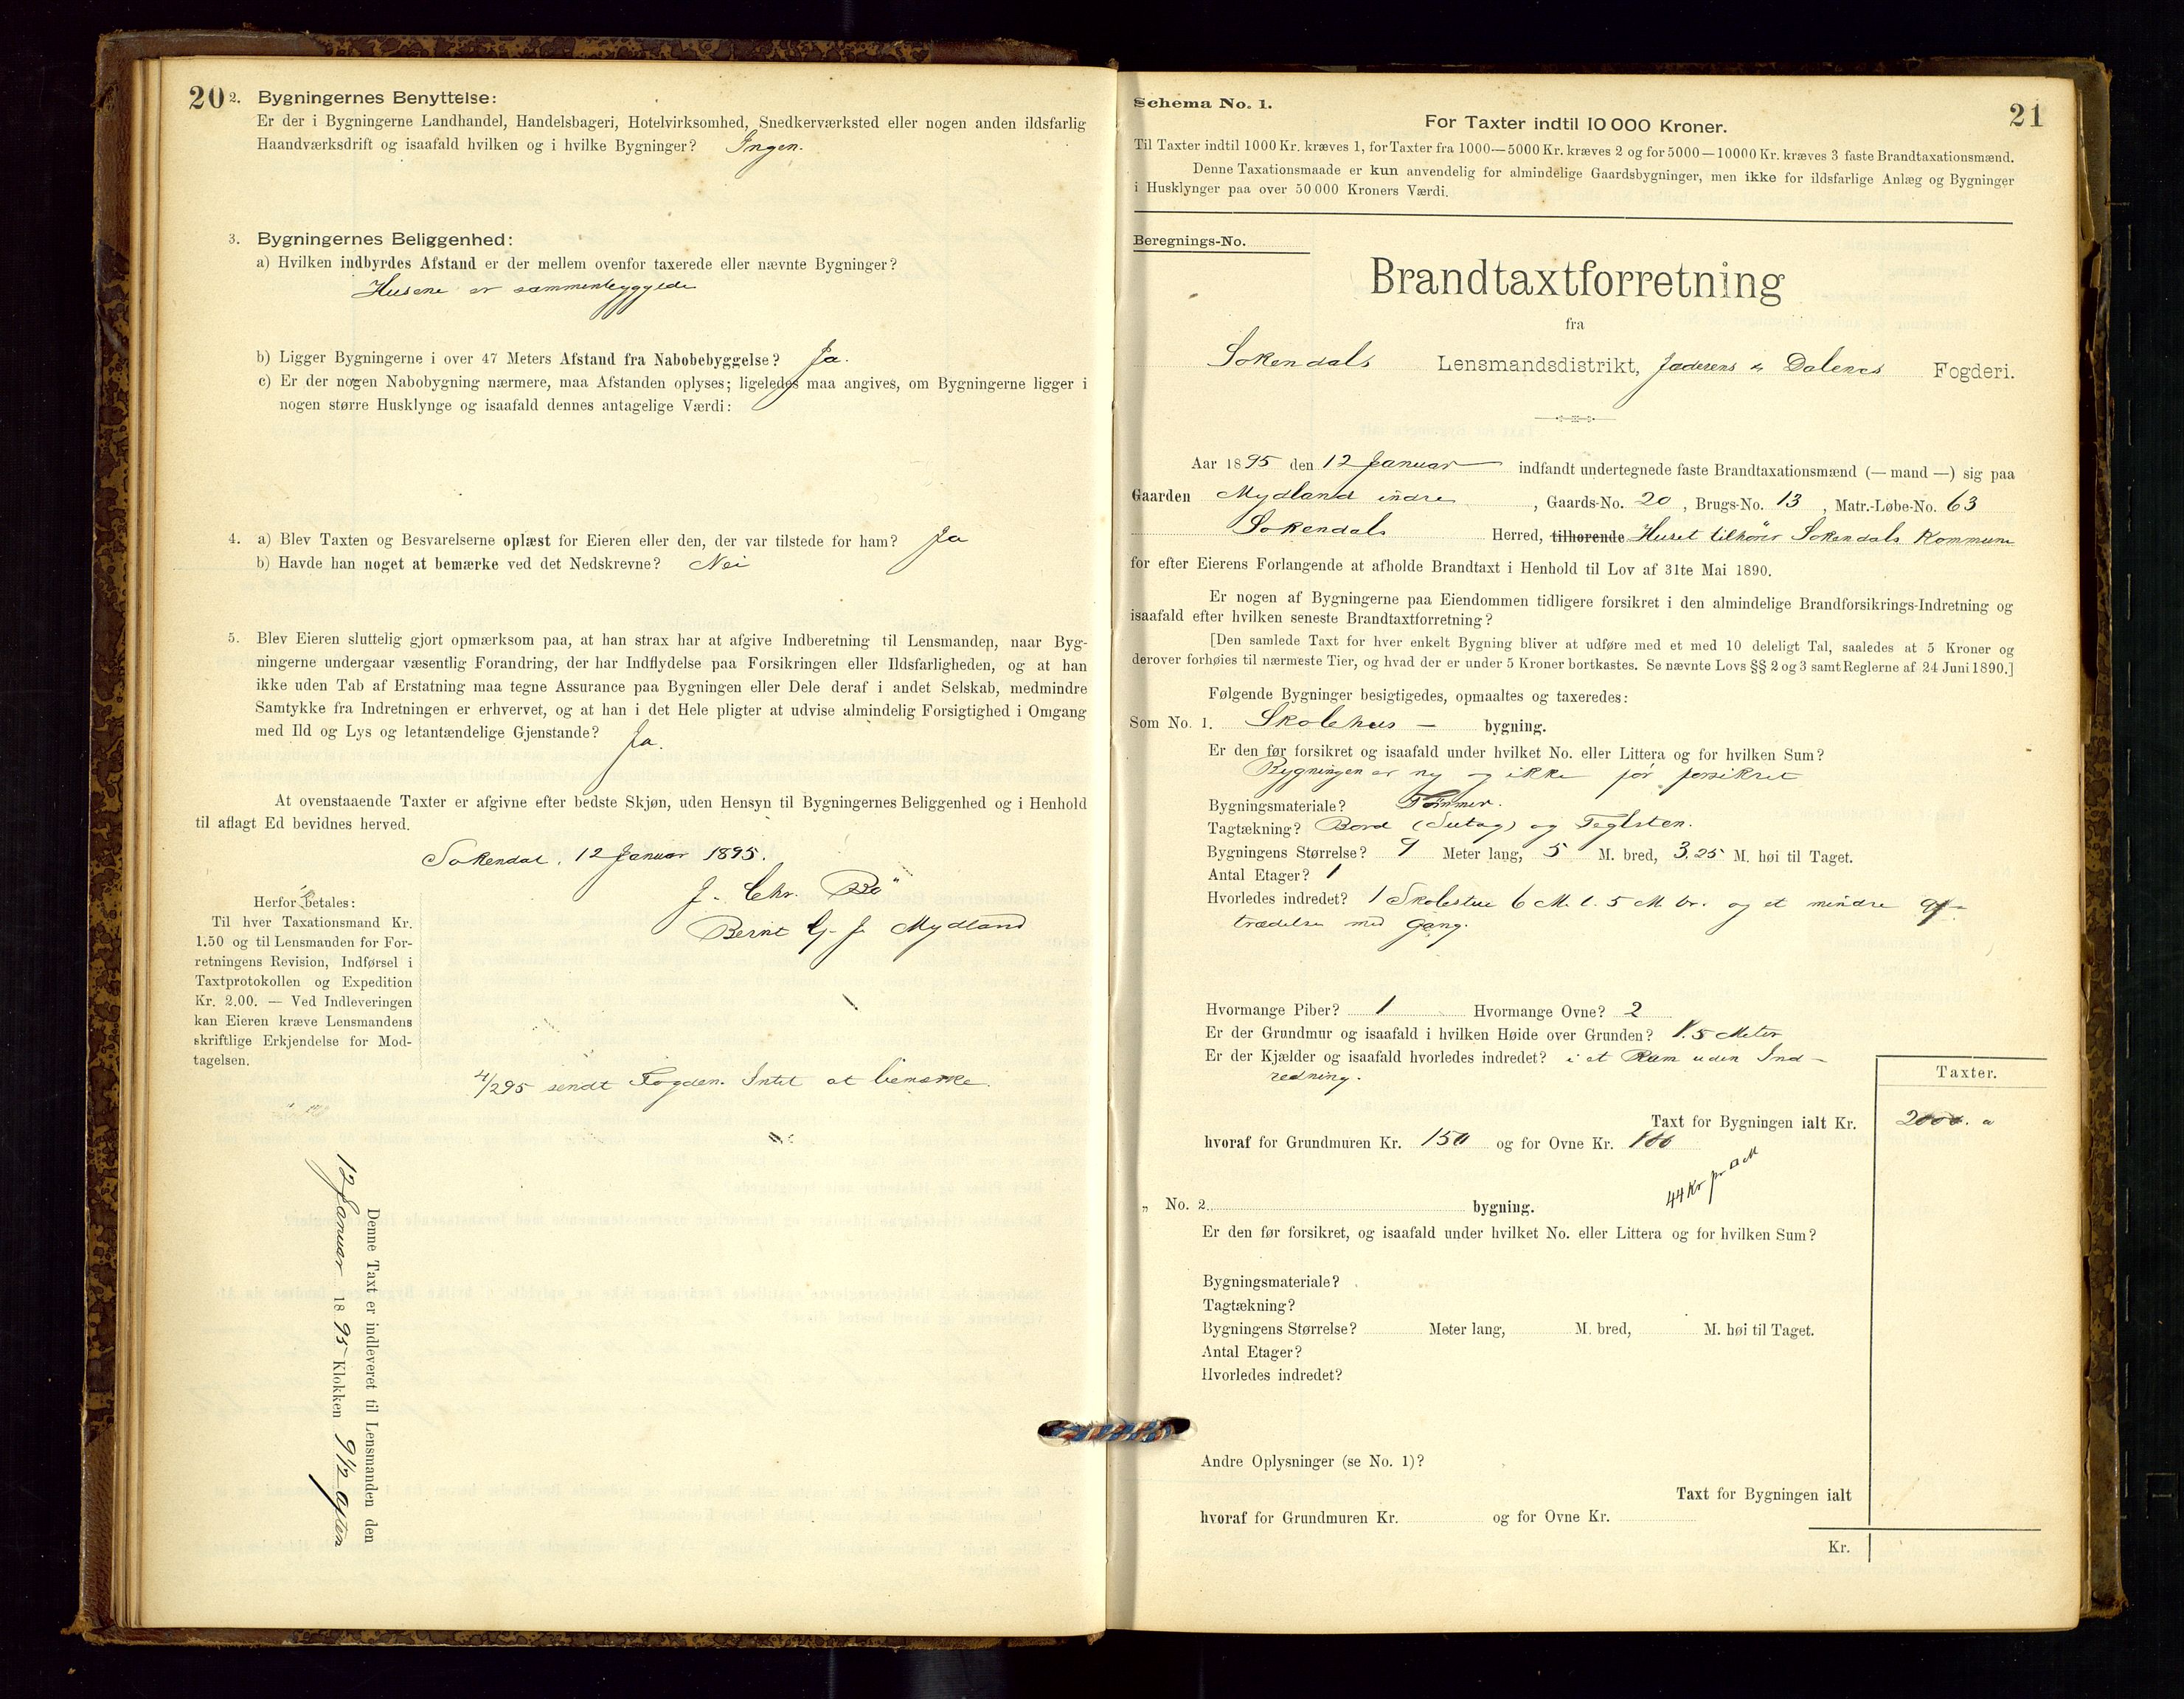 20
2. Bygningernes Benyttelse:
Er der i Bygningerne Landhandel, Handelsbageri, Hotelvirksomhed, Snedkerværksted eller nogen anden ildsfarlig
Haandværksdrift og isaafald hvilken og i hvilke Bygninger? Ingen.
3. Bygningernes Beliggenhed:
a) Hvilken indbyrdes Afstand er der mellem ovenfor taxerede eller nævnte Bygninger?
Husene er sammenbyggede
b) Ligger Bygningerne i over 47 Meters Afstand fra Nabobebyggelse? Ja.
c) Er der nogen Nabobygning nærmere, maa Afstanden oplyses; ligeledes maa angives, om Bygningerne ligger i
nogen større Husklynge og isaafald dennes antagelige Værdi:
4. a) Blev Taxten og Besvarelserne oplæst for Eieren eller den, der var tilstede for ham? Ja
b) Havde han noget at bemærke ved det Nedskrevne? Nei
5. Blev Eieren sluttelig gjort opmærksom paa, at han strax har at afgive Indberetning til Lensmanden, naar Byg-
ningerne undergaar væsentlig Forandring, der har Indflydelse paa Forsikringen eller Ildsfarligheden, og at han
ikke uden Tab af Erstatning maa tegne Assurance paa Bygningen eller Dele deraf i andet Selskab, medmindre
Samtykke fra Indretningen er erhvervet, og at han i det Hele pligter at udvise almindelig Forsigtighed i Omgang
med Ild og Lys og letantændelige Gjenstande? Ja.
At ovenstaaende Taxter er afgivne efter bedste Skjøn, uden Hensyn til Bygningernes Beliggenhed og i Henhold
til aflagt Ed bevidnes herved.
Sokendal, 12 Januar 1895.
J. Chr. Bö
Bernt G. J. Mydland
Herfor betales:
Til hver Taxationsmand Kr.
1.50 og til Lensmanden for For-
retningens Revision, Indførsel i
Taxtprotokollen og Expedition
Kr. 2.00. — Ved Indleveringen
kan Eieren kræve Lensmandens
skriftlige Erkjendelse for Mod-
tagelsen.
4/2 95 sendt Fogden. Intet at bemærke.
Denne Taxt er indleveret til Lensmanden den
12 Januar 1895 Klokken 9 1/2 Aften
Schema No. 1.
21
For Taxter indtil 10 000 Kroner.
Til Taxter indtil 1000 Kr. kræves 1, for Taxter fra 1000—5000 Kr. kræves 2 og for 5000—10000 Kr. kræves 3 faste Brandtaxationsmænd.
Denne Taxationsmaade er kun anvendelig for almindelige Gaardsbygninger, men ikke for ildsfarlige Anlæg og Bygninger
i Husklynger paa over 50 000 Kroners Værdi.
Beregnings-No.
Brandtaxtforretning
fra
Sokendals Lensmandsdistrikt, Jæderens & Dalenes Fogderi.
Aar 1895 den 12 Januar indfandt undertegnede faste Brandtaxationsmænd (— mand —) sig paa
Gaarden Mydland indre, Gaards-No. 20, Brugs-No. 13, Matr.-Løbe-No. 63
Sokendals Herred, tilhørende Huset tilhörer Sokendals Kommune
for efter Eierens Forlangende at afholde Brandtaxt i Henhold til Lov af 31te Mai 1890.
Er nogen af Bygningerne paa Eiendommen tidligere forsikret i den almindelige Brandforsikrings-Indretning og
isaafald efter hvilken seneste Brandtaxtforretning?
[Den samlede Taxt for hver enkelt Bygning bliver at udføre med et med 10 deleligt Tal, saaledes at 5 Kroner og
derover forhøies til nærmeste Tier, og hvad der er under 5 Kroner bortkastes. Se nævnte Lovs §§ 2 og 3 samt Reglerne af 24 Juni 1890.]
Følgende Bygninger besigtigedes, opmaaltes og taxeredes:
Som No. 1. Skolehus — bygning.
Er den før forsikret og isaafald under hvilket No. eller Littera og for hvilken Sum?
Bygningen er ny og ikke för forsikret
Bygningsmateriale? Tömmer.
Tagtækning? Bord (Sutag) og Teglsten.
Bygningens Størrelse? 9 Meter lang, 5 M. bred, 3.25 M. høi til Taget.
Antal Etager? 1
Hvorledes indredet? 1 Skolestue 6 M. l. 5 M. br. og et mindre Af-
trædelse med Gang.
Hvormange Piber? 1 Hvormange Ovne? 2
Er der Grundmur og isaafald i hvilken Høide over Grunden? 1.5 Meter
Er der Kjælder og isaafald hvorledes indredet? i et Rum uden Ind-
redning.
Taxter.
Taxt for Bygningen ialt Kr. 2000.
hvoraf for Grundmuren Kr. 150 og for Ovne Kr. 100
44 Kr pr □ M
„ No. 2. bygning.
Er den før forsikret, og isaafald under hvilket No. eller Littera og for hvilken Sum?
Bygningsmateriale?
Tagtækning?
Bygningens Størrelse? Meter lang, M. bred, M. høi til Taget.
Antal Etager?
Hvorledes indredet?
Andre Oplysninger (se No. 1)?
Taxt for Bygningen ialt
hvoraf for Grundmuren Kr. og for Ovne Kr.
Kr.